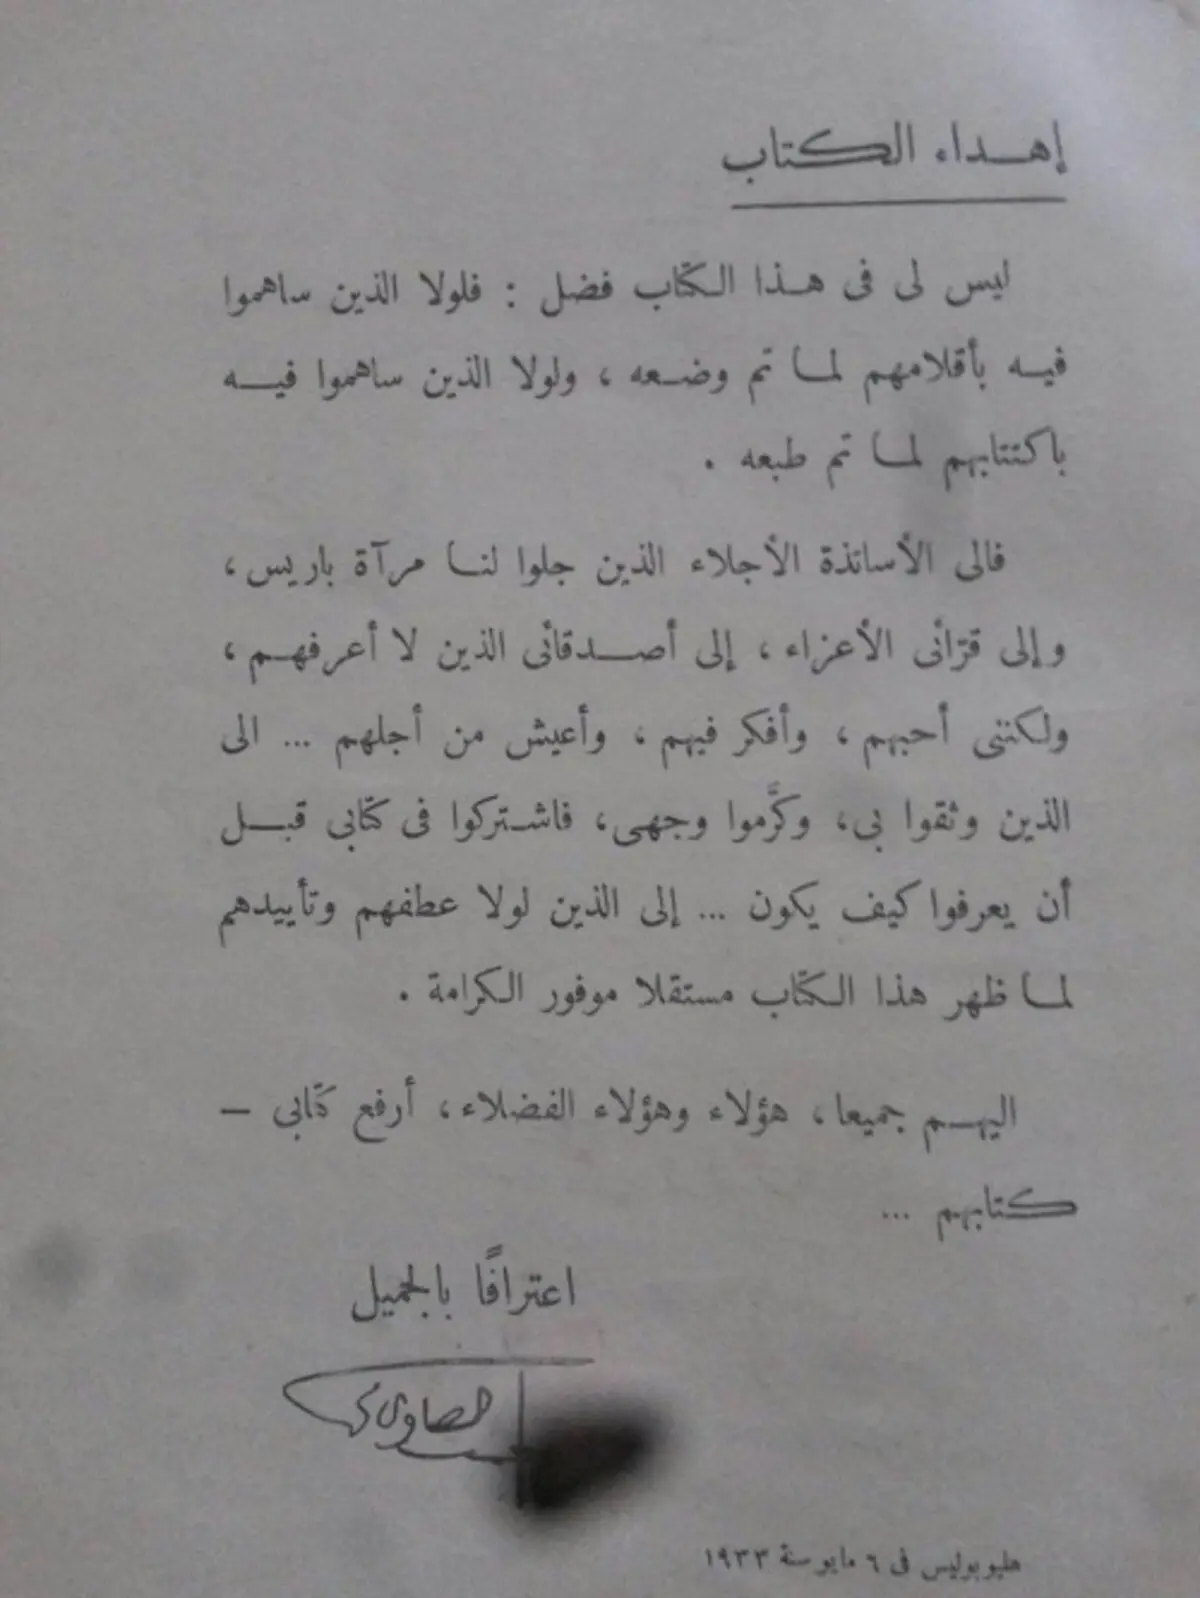 إهداء الكتاب
ليس لى فى هذا الكتاب فضل : فلولا الذين ساهموا
فيه بأقلامهم لما تم وضعه ، ولولا الذين ساهموا فيه
باكتتابهم لما تم طبعه .
فالى الأساتذة الأجلاء الذين جلوا لنا مرآة باريس ،
وإلى قرّائى الأعزاء ، إلى أصدقائى الذين لا أعرفهم ،
ولكننى أحبهم ، وأفكر فيهم ، وأعيش من أجلهم ... الى
الذين وثقوا بى ، وكرَّموا وجهى ، فاشتركوا فى كتابى قبل
أن يعرفوا كيف يكون ... إلى الذين لولا عطفهم وتأييدهم
لما ظهر هذا الكتاب مستقلا موفور الكرامة .
اليهم جميعا ، هؤلاء وهؤلاء الفضلاء ، أرفع كتابى —
كتابهم ...
اعترافًا بالجميل
الصاوى
هليوبوليس فى ٦ مايو سنة ١٩٣٣